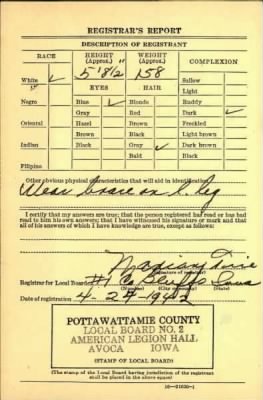 REGISTRAR'S REPORT
DESCRIPTION OF REGISTRANT
RACE HEIGHT (Approx.) WEIGHT (Approx.) COMPLEXION
5' 8½" 158
White ✓ Sallow
EYES HAIR Light
Negro Blue ✓ Blonde Ruddy
Gray Red Dark ✓
Oriental Hazel Brown Freckled
Brown Black Light brown
Indian Black Gray ✓ Dark brown
Bald Black
Filipino
Other obvious physical characteristics that will aid in identification
Wear brace on l. leg
I certify that my answers are true; that the person registered has read or has had
read to him his own answers; that I have witnessed his signature or mark and that
all of his answers of which I have knowledge are true, except as follows:
(Signature of registrar)
Registrar for Local Board #1 Iowa
(Number) (City or county) (State)
Date of registration 4-27-1942
POTTAWATTAMIE COUNTY
LOCAL BOARD NO. 2
AMERICAN LEGION HALL
AVOCA IOWA
(STAMP OF LOCAL BOARD)
(The stamp of the Local Board having jurisdiction of the registrant
shall be placed in the above space)
16—21630-1